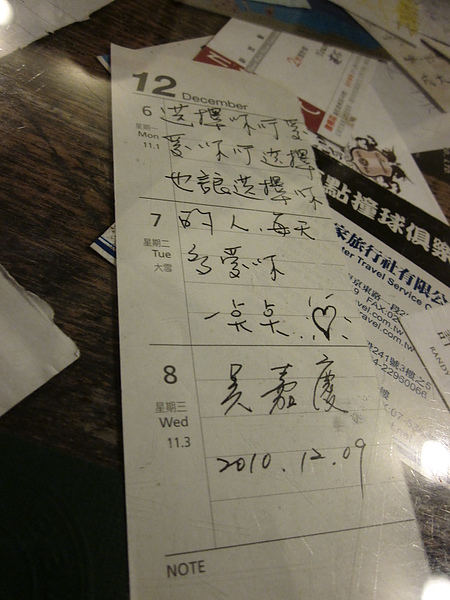 12 December
6 選擇你所愛
星期一
Mon 愛你所選擇
11.1
也讓選擇你
7 的人,每天
星期二
Tue 多愛你
大雪
一點點..♡
8 吳嘉慶
星期三
Wed
11.3 2010.12.09
NOTE
點撞球俱樂
家旅行社有限公
fer Travel Service C
FAX:02
vel.com.tw
travel.com.tw
路241號3樓之5
4-22960066
樓
RANDY